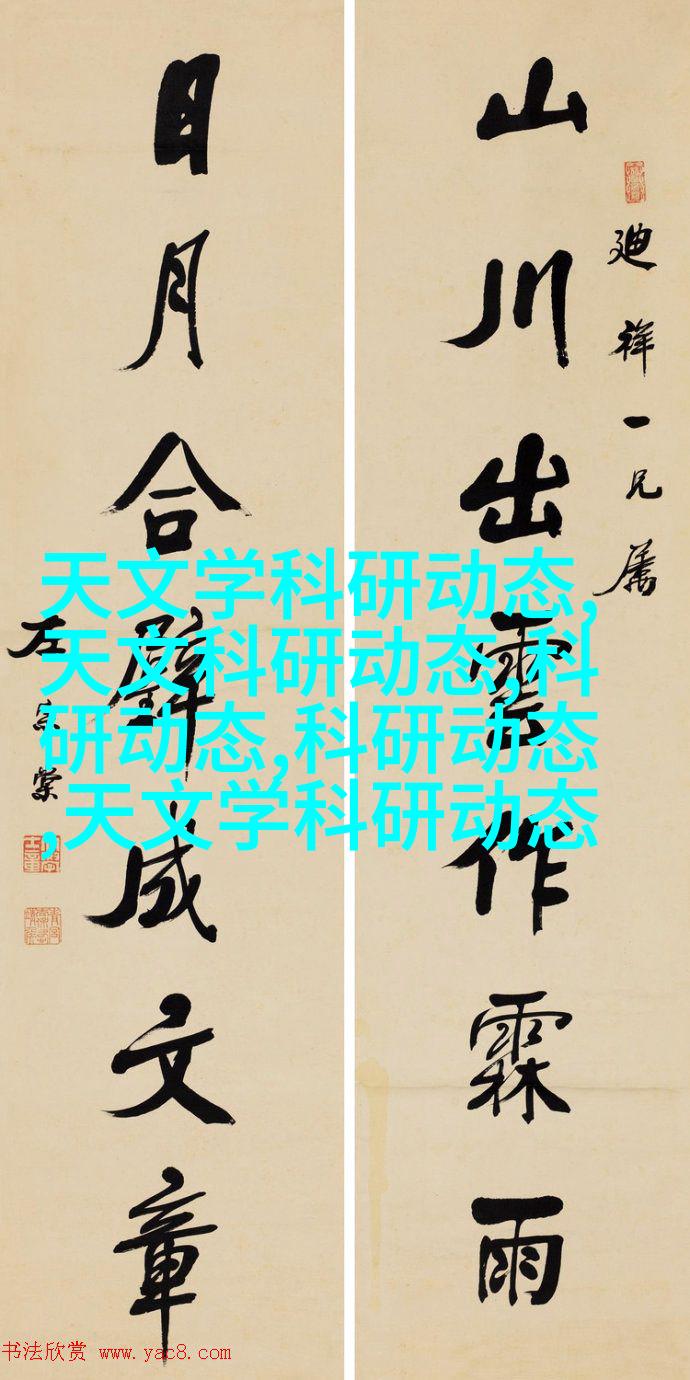 廸祥一兄属
山川出雲作霖雨
日月合璧成文章
左宗棠
天文学科研动态,
天文科研动态,科
研动态,科研动态
,天文学科研动态
书法欣赏 www.yac8.com